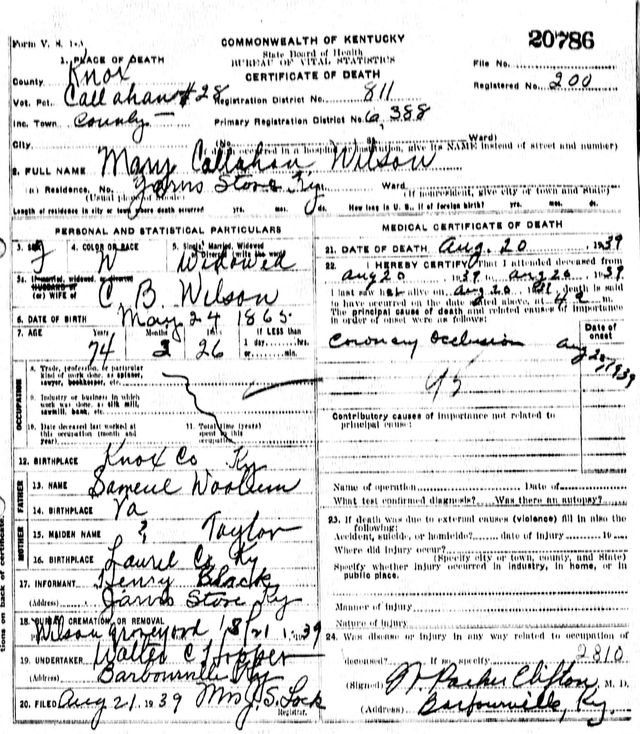 COMMONWEALTH OF KENTUCKY
State Board of Health
BUREAU OF VITAL STATISTICS
CERTIFICATE OF DEATH
20786
Form V. S. 1-A
1. PLACE OF DEATH
County Knox
File No.
Registered No. 200
Vot. Pct. Callahan #28 Registration District No. 811
Inc. Town County Primary Registration District No. 6,388
City (No. Ward)
(If death occurred in a hospital or institution, give its NAME instead of street and number)
2. FULL NAME Mary Callahan Wilson
(a) Residence, No. Jarvis Store Ky. Ward
(Usual place of abode) (If nonresident, give city or town and State)
Length of residence in city or town where death occurred yrs. mos. ds. How long in U. S., if of foreign birth? yrs. mos. ds.
PERSONAL AND STATISTICAL PARTICULARS
3. SEX F 4. COLOR OR RACE W 5. Single, Married, Widowed or Divorced (write the word) Widowed
5a. If married, widowed, or divorced
HUSBAND of
(or) WIFE of C. B. Wilson
6. DATE OF BIRTH May 24 1865
7. AGE Years 74 Months 2 Days 26 If LESS than
1 day, hrs.
or min.
OCCUPATION
8. Trade, profession, or particular
kind of work done, as spinner,
sawyer, bookkeeper, etc.
9. Industry or business in which
work was done, as silk mill,
sawmill, bank, etc.
10. Date deceased last worked at
this occupation (month and
year)
11. Total time (years)
spent in this
occupation
12. BIRTHPLACE Knox Co Ky
FATHER
13. NAME Samuel Woolum
14. BIRTHPLACE Va
MOTHER
15. MAIDEN NAME ? Taylor
16. BIRTHPLACE Laurel Co Ky
17. INFORMANT Henry Black
(Address) Jarvis Store Ky
18. BURIAL CREMATION OR REMOVAL
Wilson graveyard 8/21 1939
19. UNDERTAKER Walter C Hopper
(Address) Barbourville Ky
20. FILED Aug 21, 1939 Mrs J. S. Lock
Registrar.
MEDICAL CERTIFICATE OF DEATH
21. DATE OF DEATH Aug. 20, 1939
22. I HEREBY CERTIFY That I attended deceased from
Aug 20 1939 to Aug 20, 1939
I last saw her alive on Aug 20 death is said
to have occurred on the date stated above, at 4 a m
The principal cause of death and related causes of importance
in order of onset were as follows:
Date of
onset
Coronary Occlusion Aug 20, 1939
95
Contributory causes of importance not related to
principal cause:
Name of operation Date of
What test confirmed diagnosis? Was there an autopsy?
23. If death was due to external causes (violence) fill in also the
following:
Accident, suicide, or homicide? date of injury 19
Where did injury occur?
(Specify city or town, county, and State)
Specify whether injury occurred in industry, in home, or in
public place.
Manner of injury
Nature of injury
24. Was disease or injury in any way related to occupation of
deceased? If so, specify 2810
(Signed) W Parker Clifton, M. D.
(Address) Barbourville, Ky.
tions on back of certificate.